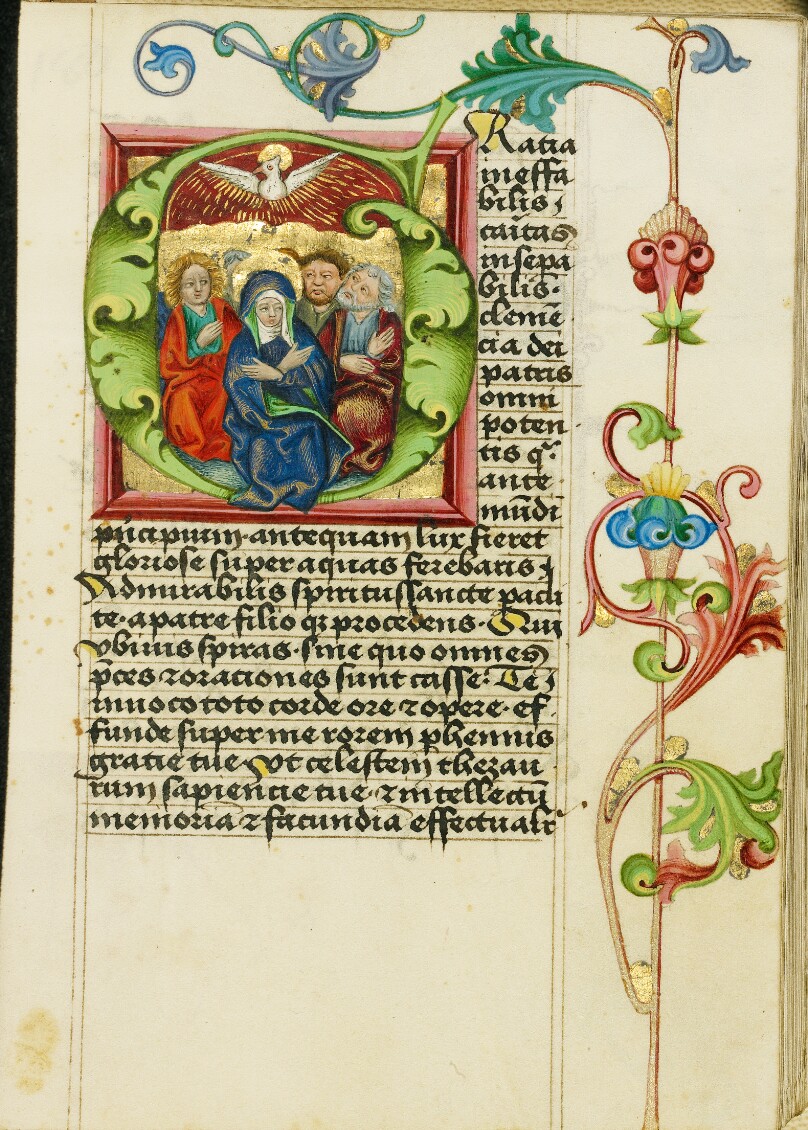 GRatia
ineffa
bilis /
caĩtas
insepa
bilis·
clemē
cia dei
patris
omni
poten
tis q̃
ante
mūdi
pñcipium· antequam lux fieret
gloriose super aquas ferebaris /
Admirabilis spiritussancte pacli
te· a patre filio qꝫ procedens· Qui
vbi vis spiras· sine quo omnes
p̄ces ⁊ oraciones sunt casse: Te /
inuoco toto corde ore ⁊ opere· ef
funde super me rorem phennis
gratie tue· Vt celestem thezau
rum sapiencie tue· ⁊ intellectū
memoria ⁊ facundia effectuali